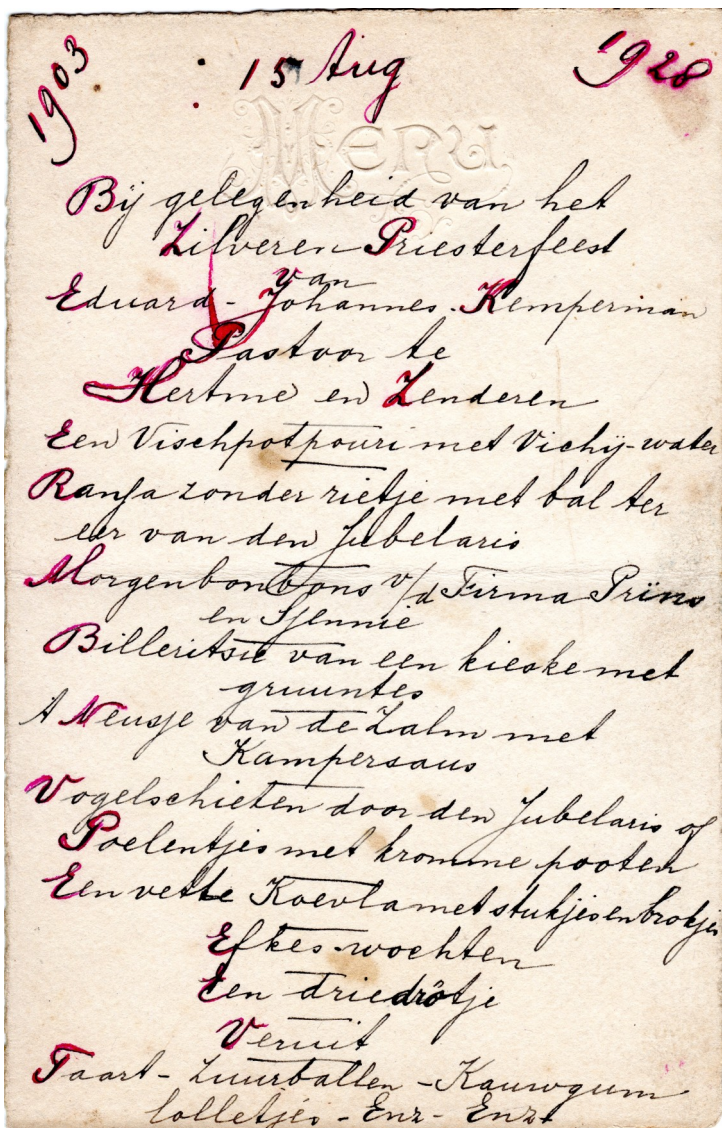 1903 15 Aug 1928
MENU
Bij gelegenheid van het
Zilveren Priesterfeest
van
Eduard-Johannes-Kemperman
Pastoor te
Hertme en Zenderen
Een Vischpotpouri met Vichij-water
Ranja zonder rietje met bal ter
eer van den Jubelaris
Morgenbonbons v/d Firma Prins
en Sjennie
Billeritsie van een kieske met
gruuntes
't Neusje van de Zalm met
Kampersaus
Vogelschieten door den Jubelaris of
Poelentjes met kromme pooten
Een vette Koevla met stukjes en brokjes
Efkes-wochten
Een driedrötje
Veruit
Taart-Zuurballen-Kauwgum
lolletjes-Enz-Enz